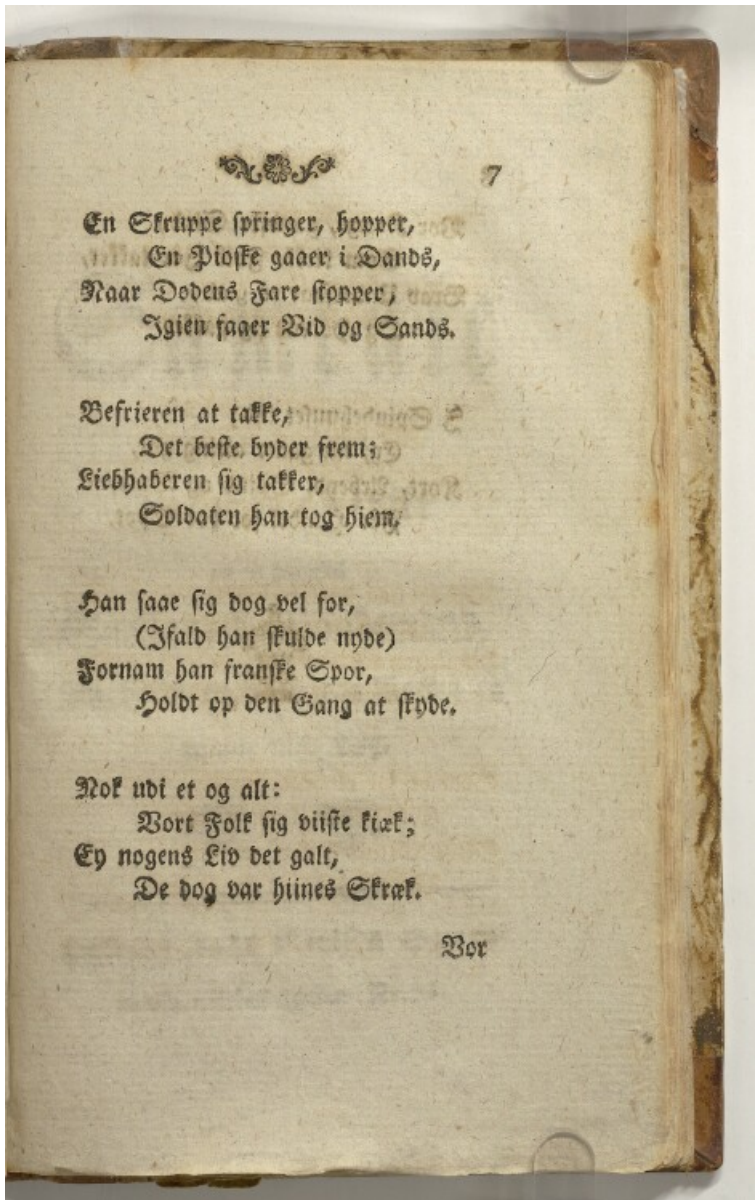 7
En Skruppe springer, hopper,
En Pioske gaaer i Dands,
Naar Dødens Fare stopper,
Igien faaer Vid og Sands.
Befrieren at takke,
Det beste byder frem;
Liebhaberen sig takker,
Soldaten han tog hiem.
Han saae sig dog vel for,
(Ifald han skulde nyde)
Fornam han franske Spor,
Holdt op den Gang at skyde.
Nok udi et og alt:
Vort Folk sig viiste kiæk;
Ey nogens Liv det galt,
De dog var hiines Skræk.
Vor